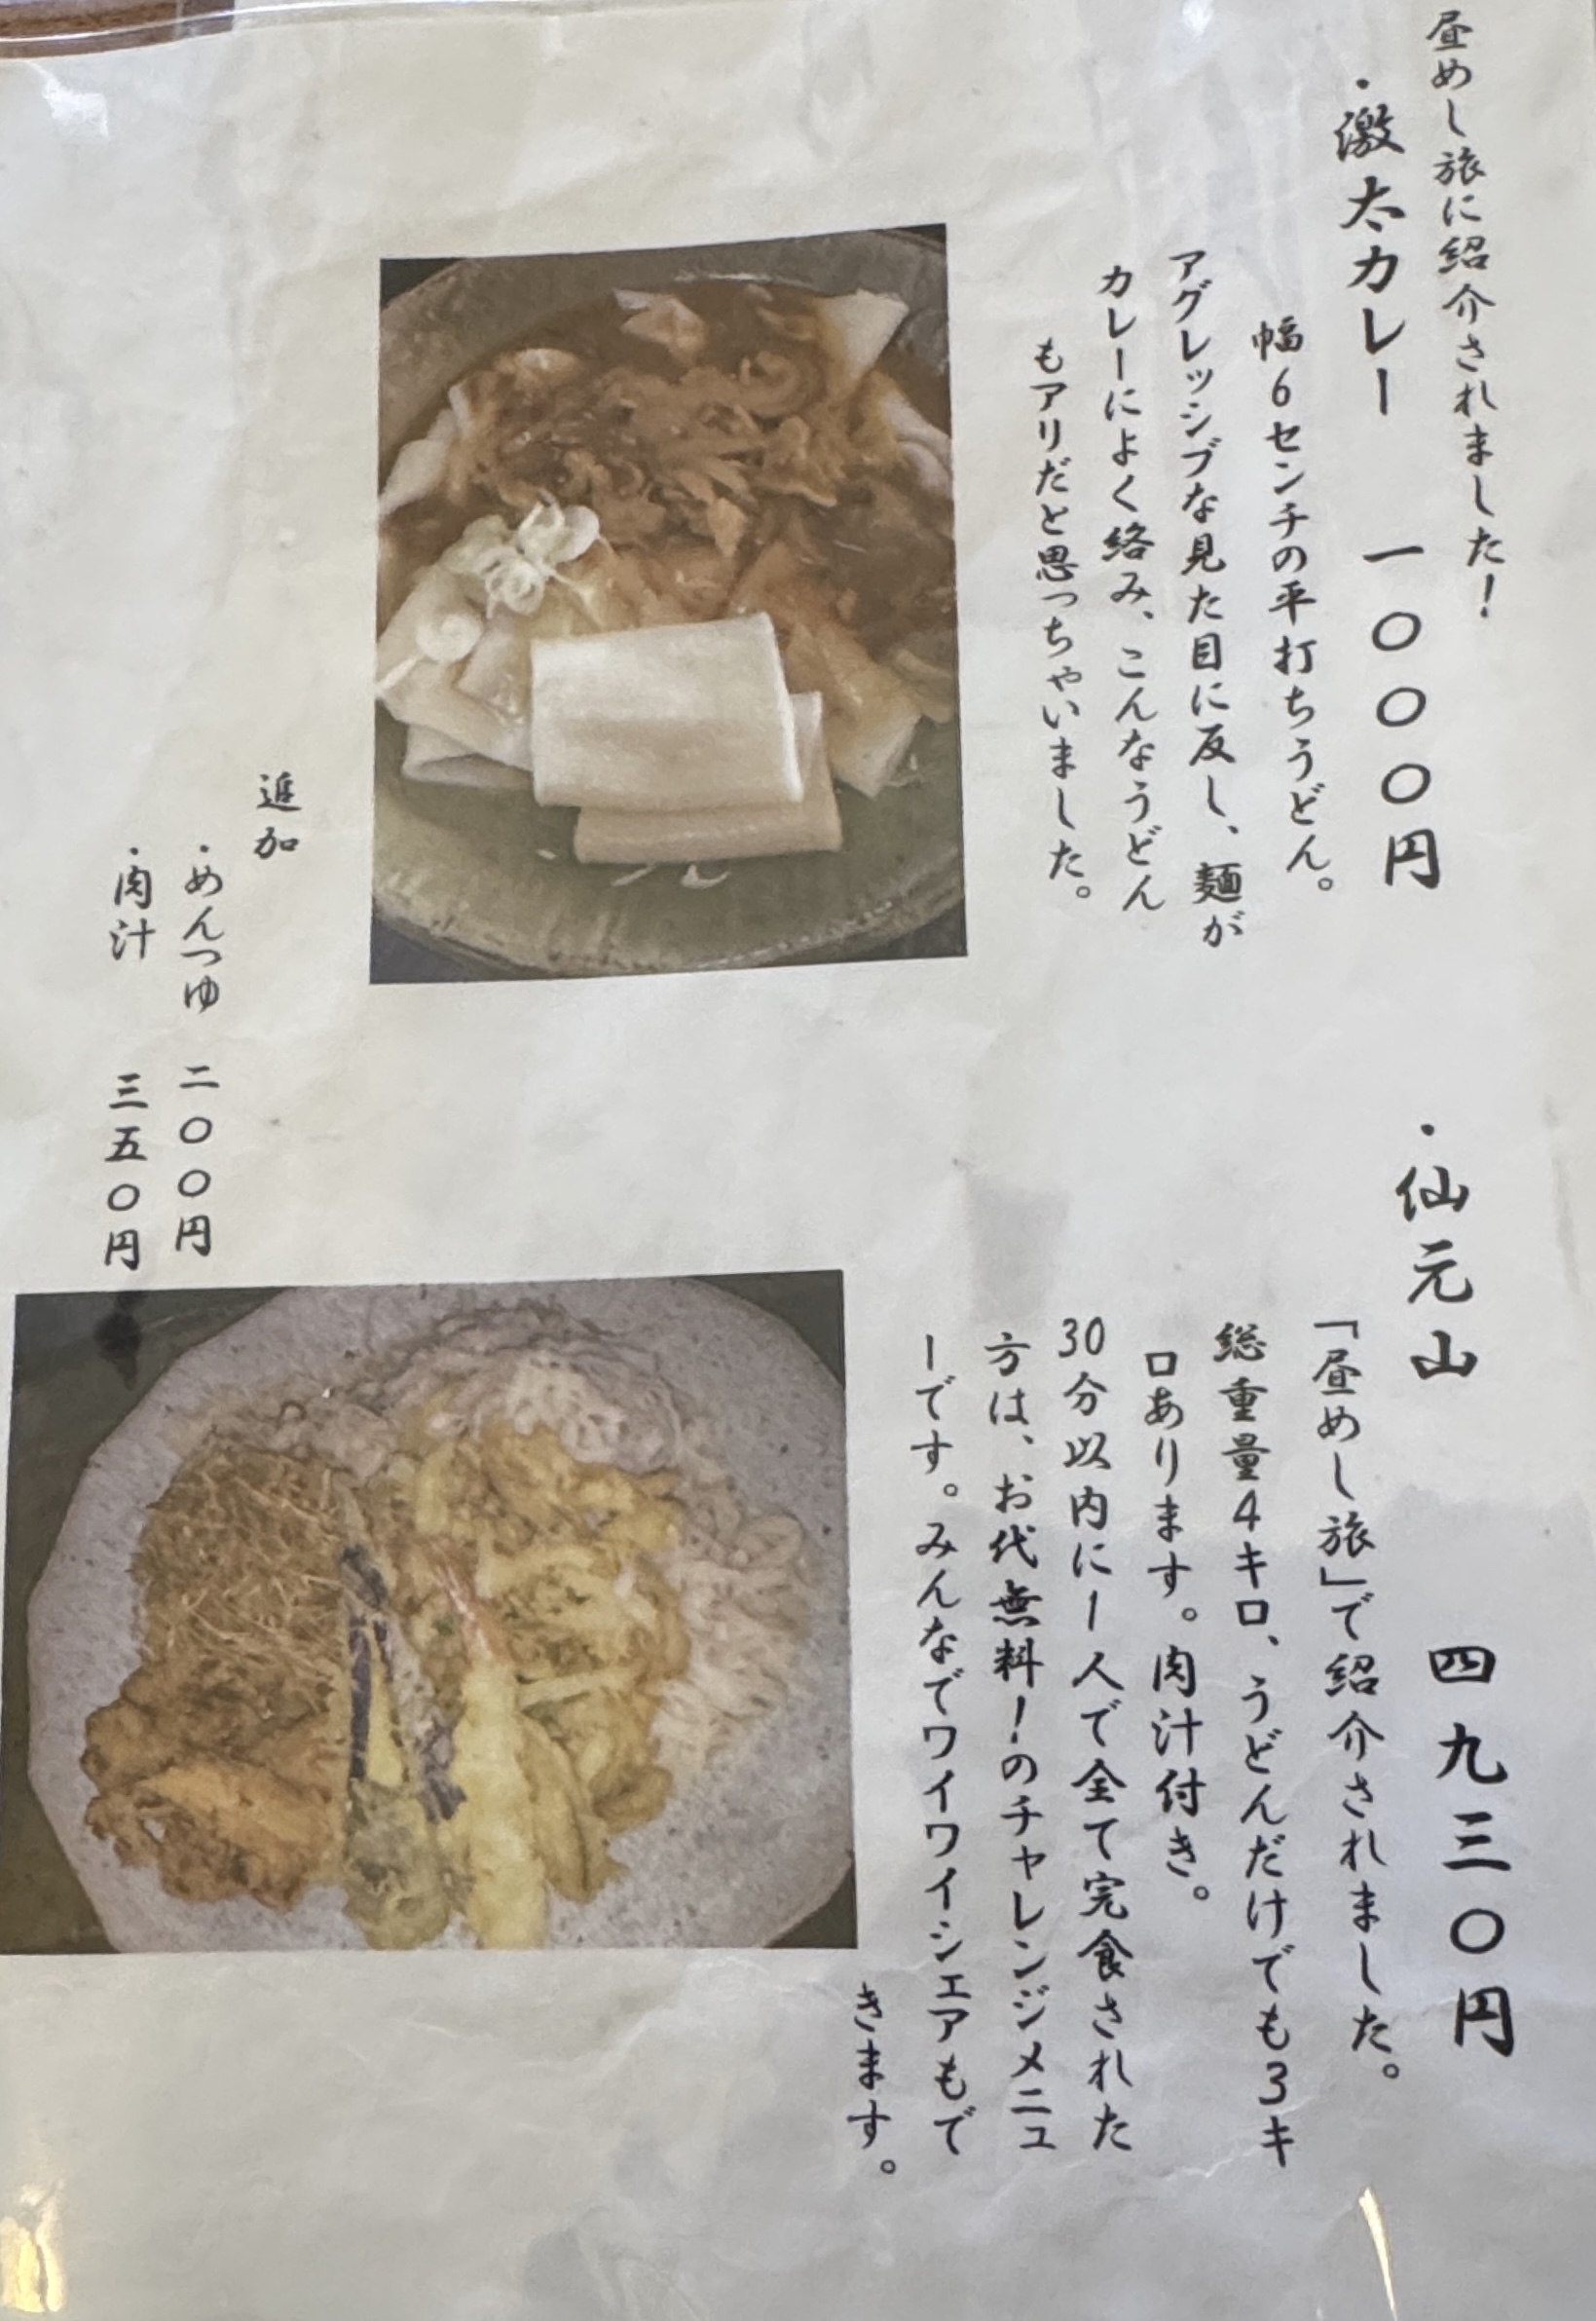 昼めし旅に紹介されました！
・激太カレー 一〇〇〇円
幅6センチの平打ちうどん。
アグレッシブな見た目に反し、麺が
カレーによく絡み、こんなうどん
もアリだと思っちゃいました。
追加
・めんつゆ 二〇〇円
・肉汁 三五〇円
・仙元山 四九三〇円
「昼めし旅」で紹介されました。
総重量4キロ、うどんだけでも3キ
ロあります。肉汁付き。
30分以内に1人で全て完食された
方は、お代無料！のチャレンジメニュ
ーです。みんなでワイワイシェアもで
きます。